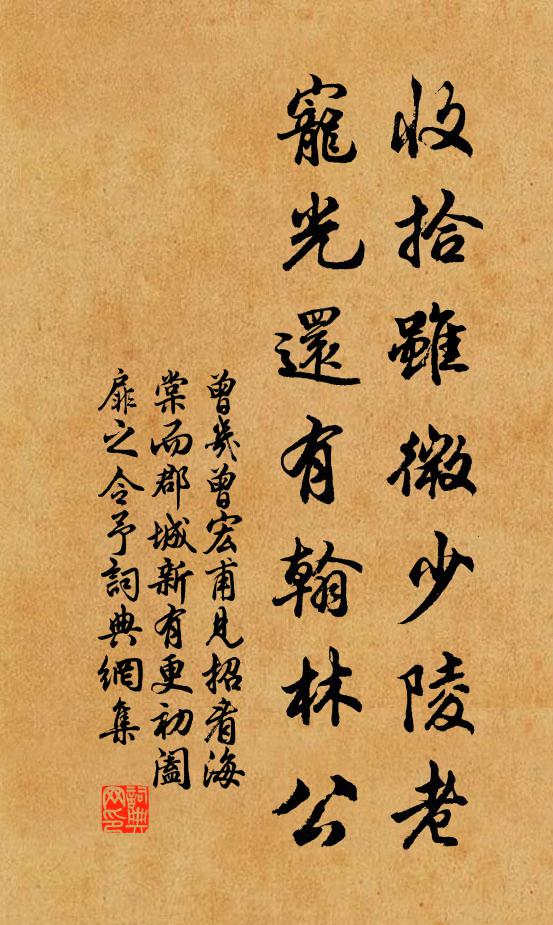 收拾雖微少陵老
寵光還有翰林公
曾幾曾宏甫見招看海
棠而郡城新有更初闔
扉之令予詞典網集
詞典
网印